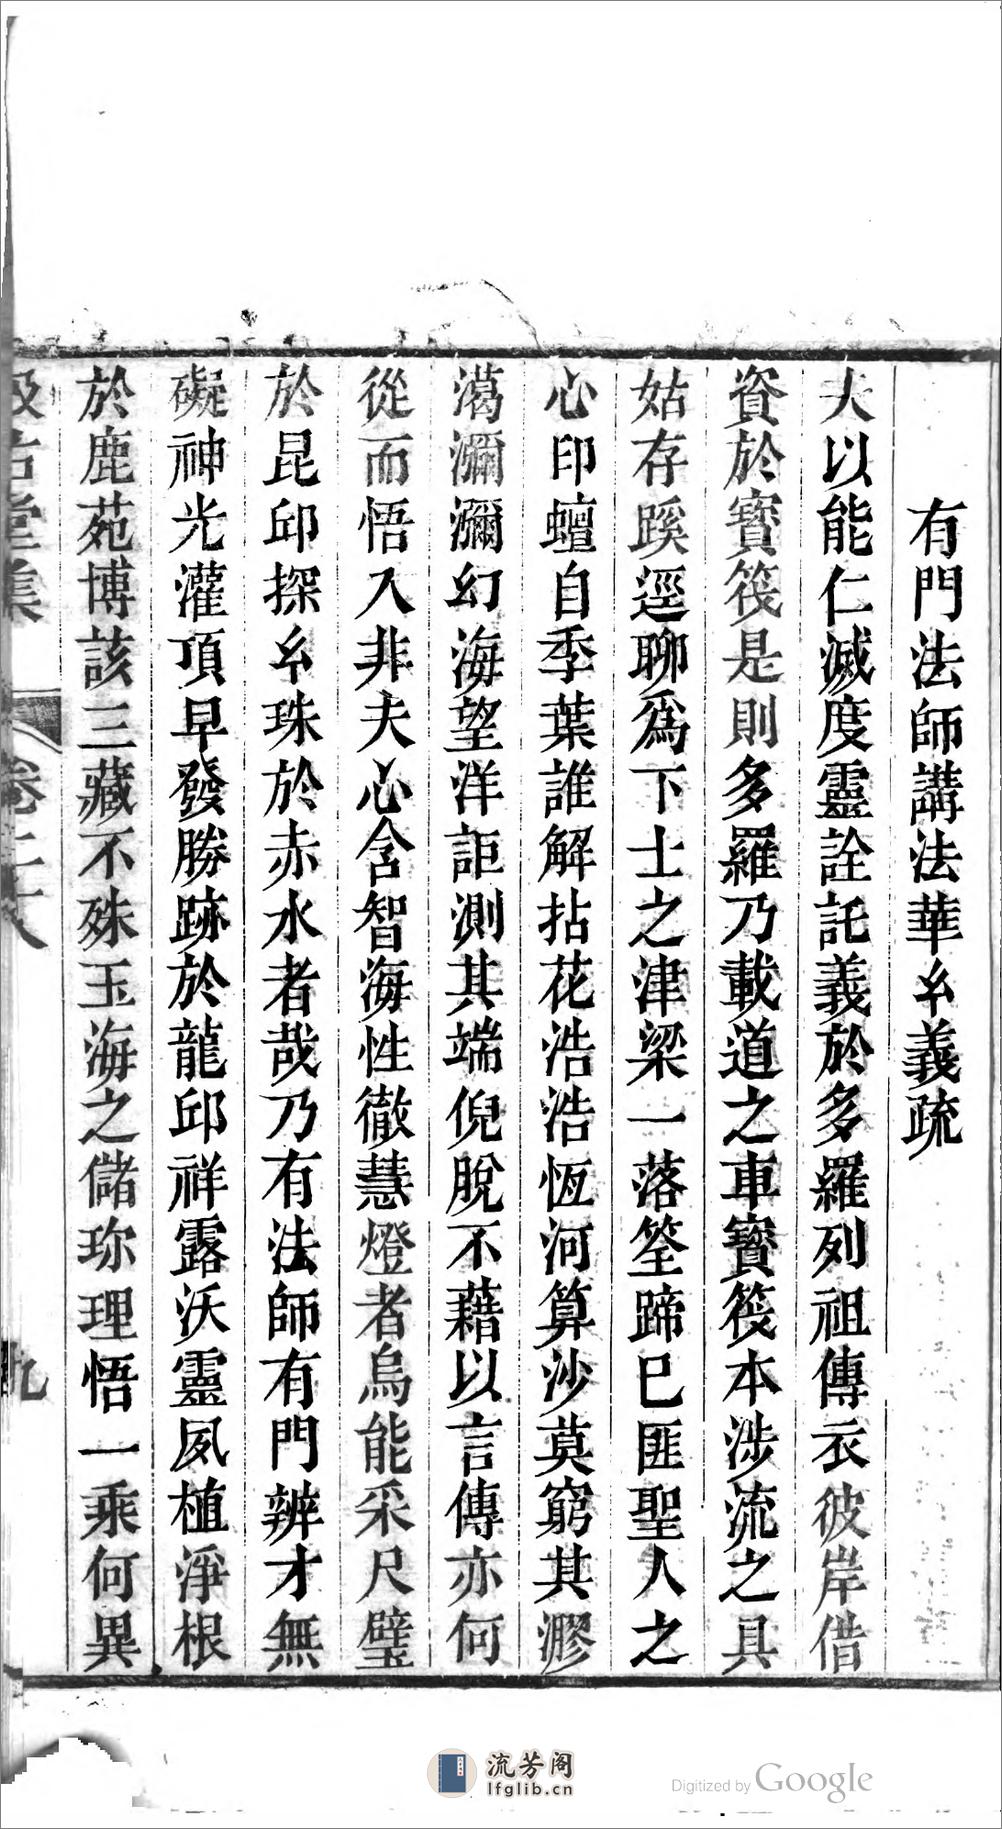 有門法師講法華幺義疏
夫以能仁滅度靈詮託義於多羅列祖傳衣彼岸借
資於寳筏是則多羅乃載道之車寳筏本涉流之具
姑存蹊逕聊爲下士之津梁一落筌蹄已匪聖人之
心印壇自季葉誰解拈花浩浩恆河算沙莫窮其漻
澫瀰瀰幻海望洋詎測其端倪脫不藉以言傳亦何
從而悟入非夫心含智海性徹慧燈者烏能采尺璧
於昆邱探幺珠於赤水者哉乃有法師有門辨才無
礙神光灌頂早發勝跡於龍邱祥露沃靈夙植淨根
於鹿苑博該三藏不殊玉海之儲珎理悟一乘何異
古堂集 卷二十八 九
流芳阁
lfglib.cn
Digitized by Google